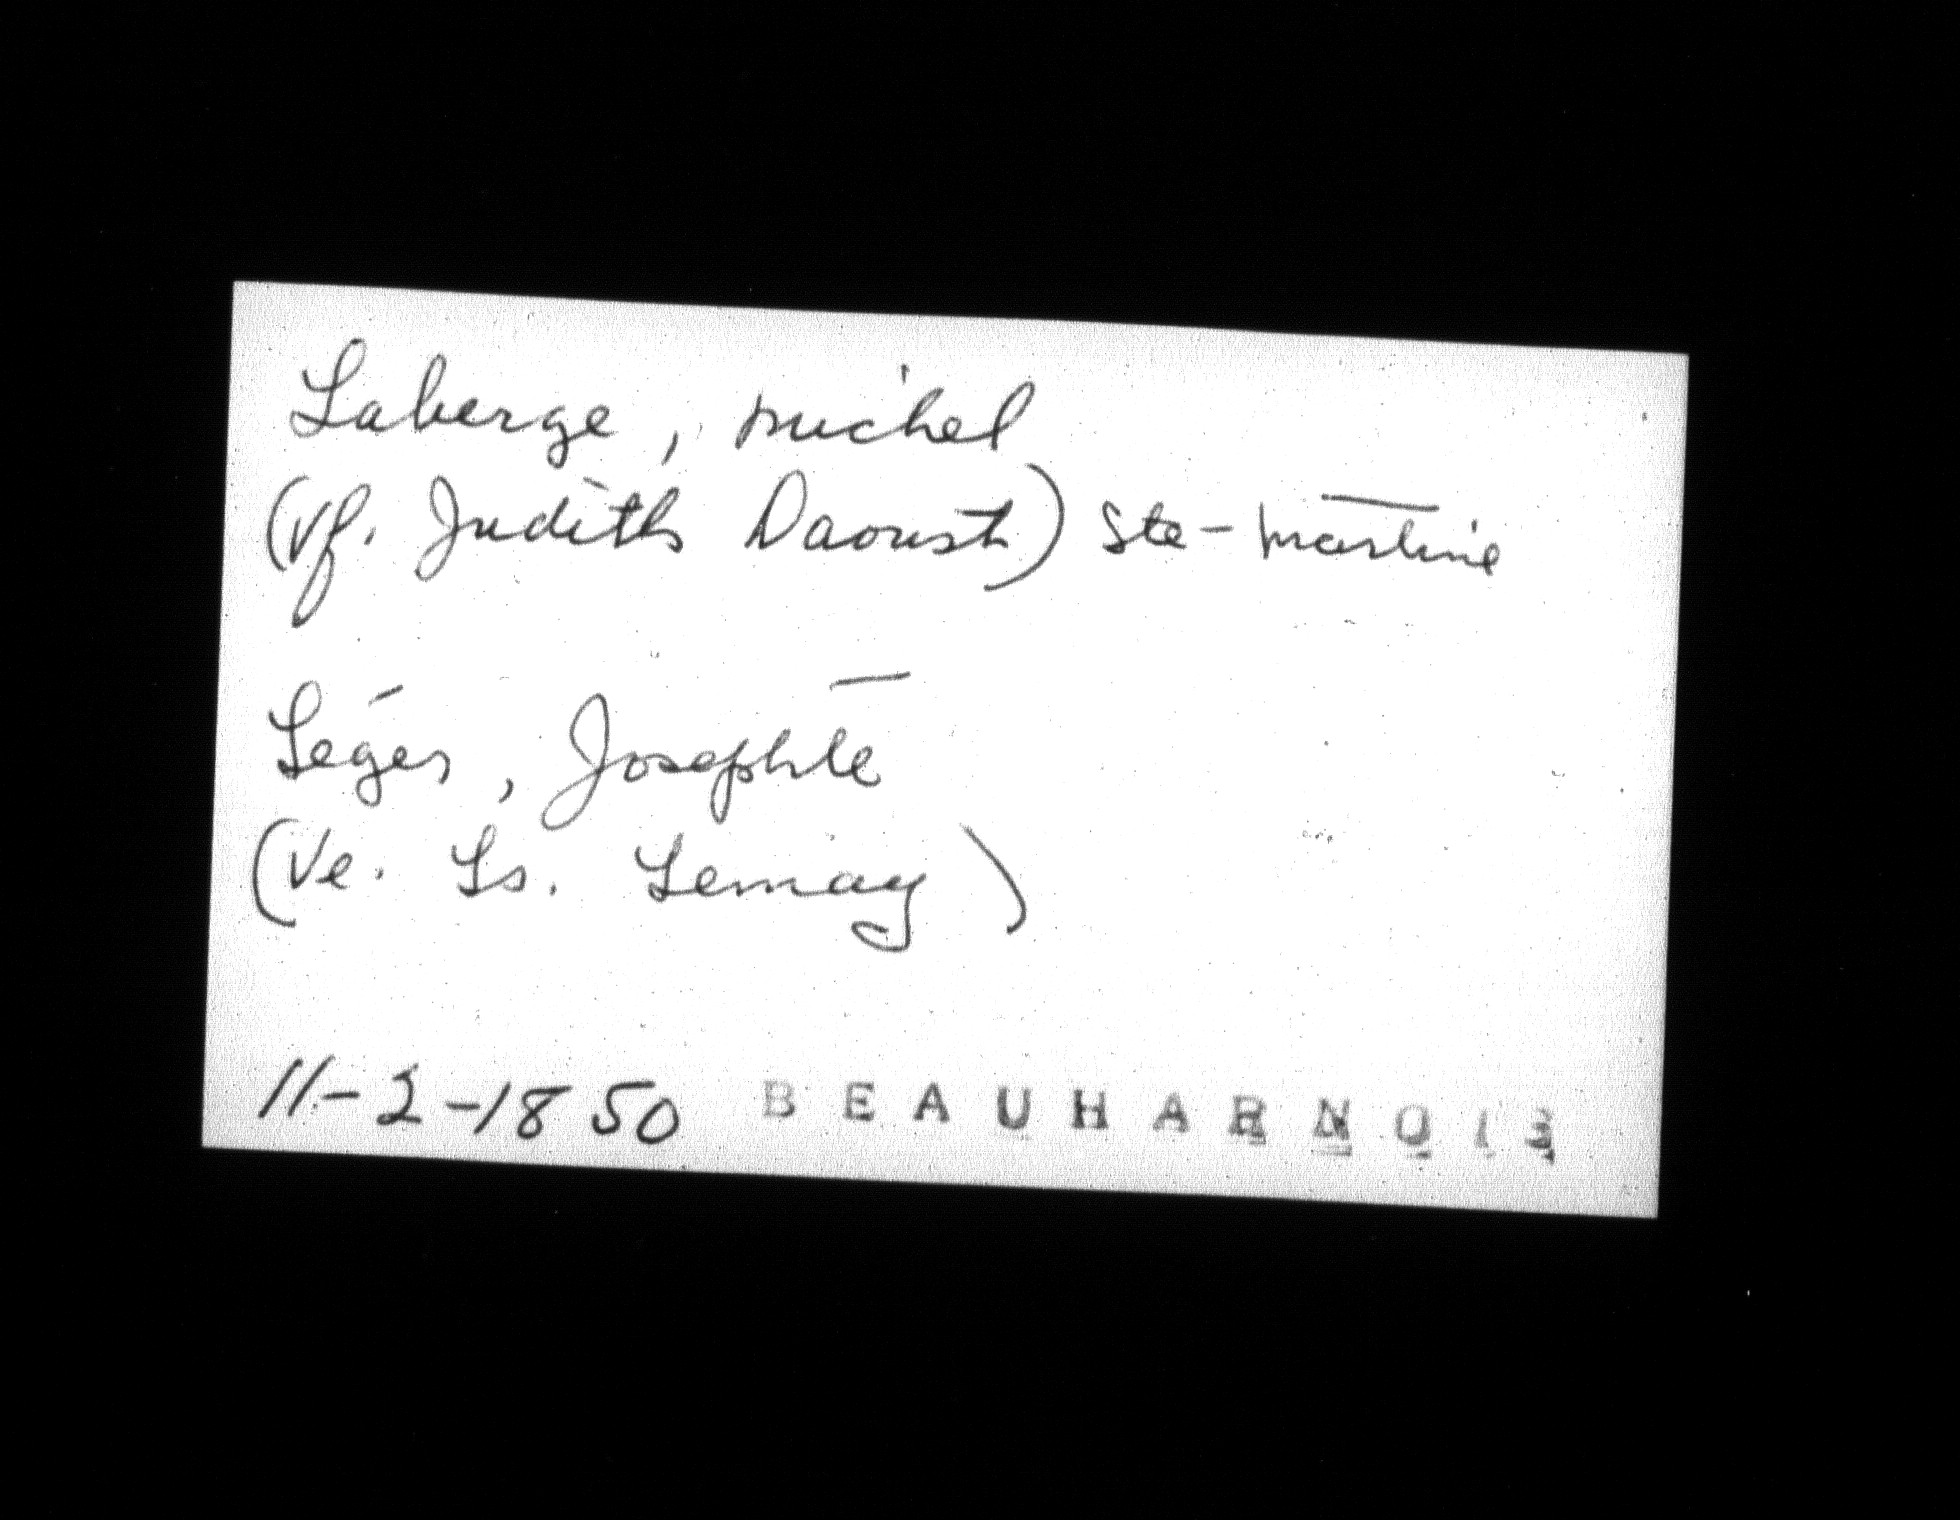 Laberge, Michel
(Vf. Judith Daoust) Ste-Martine
Léger, Josephte
(Ve. Ls. Lemay)
11-2-1850 BEAUHARNOIS